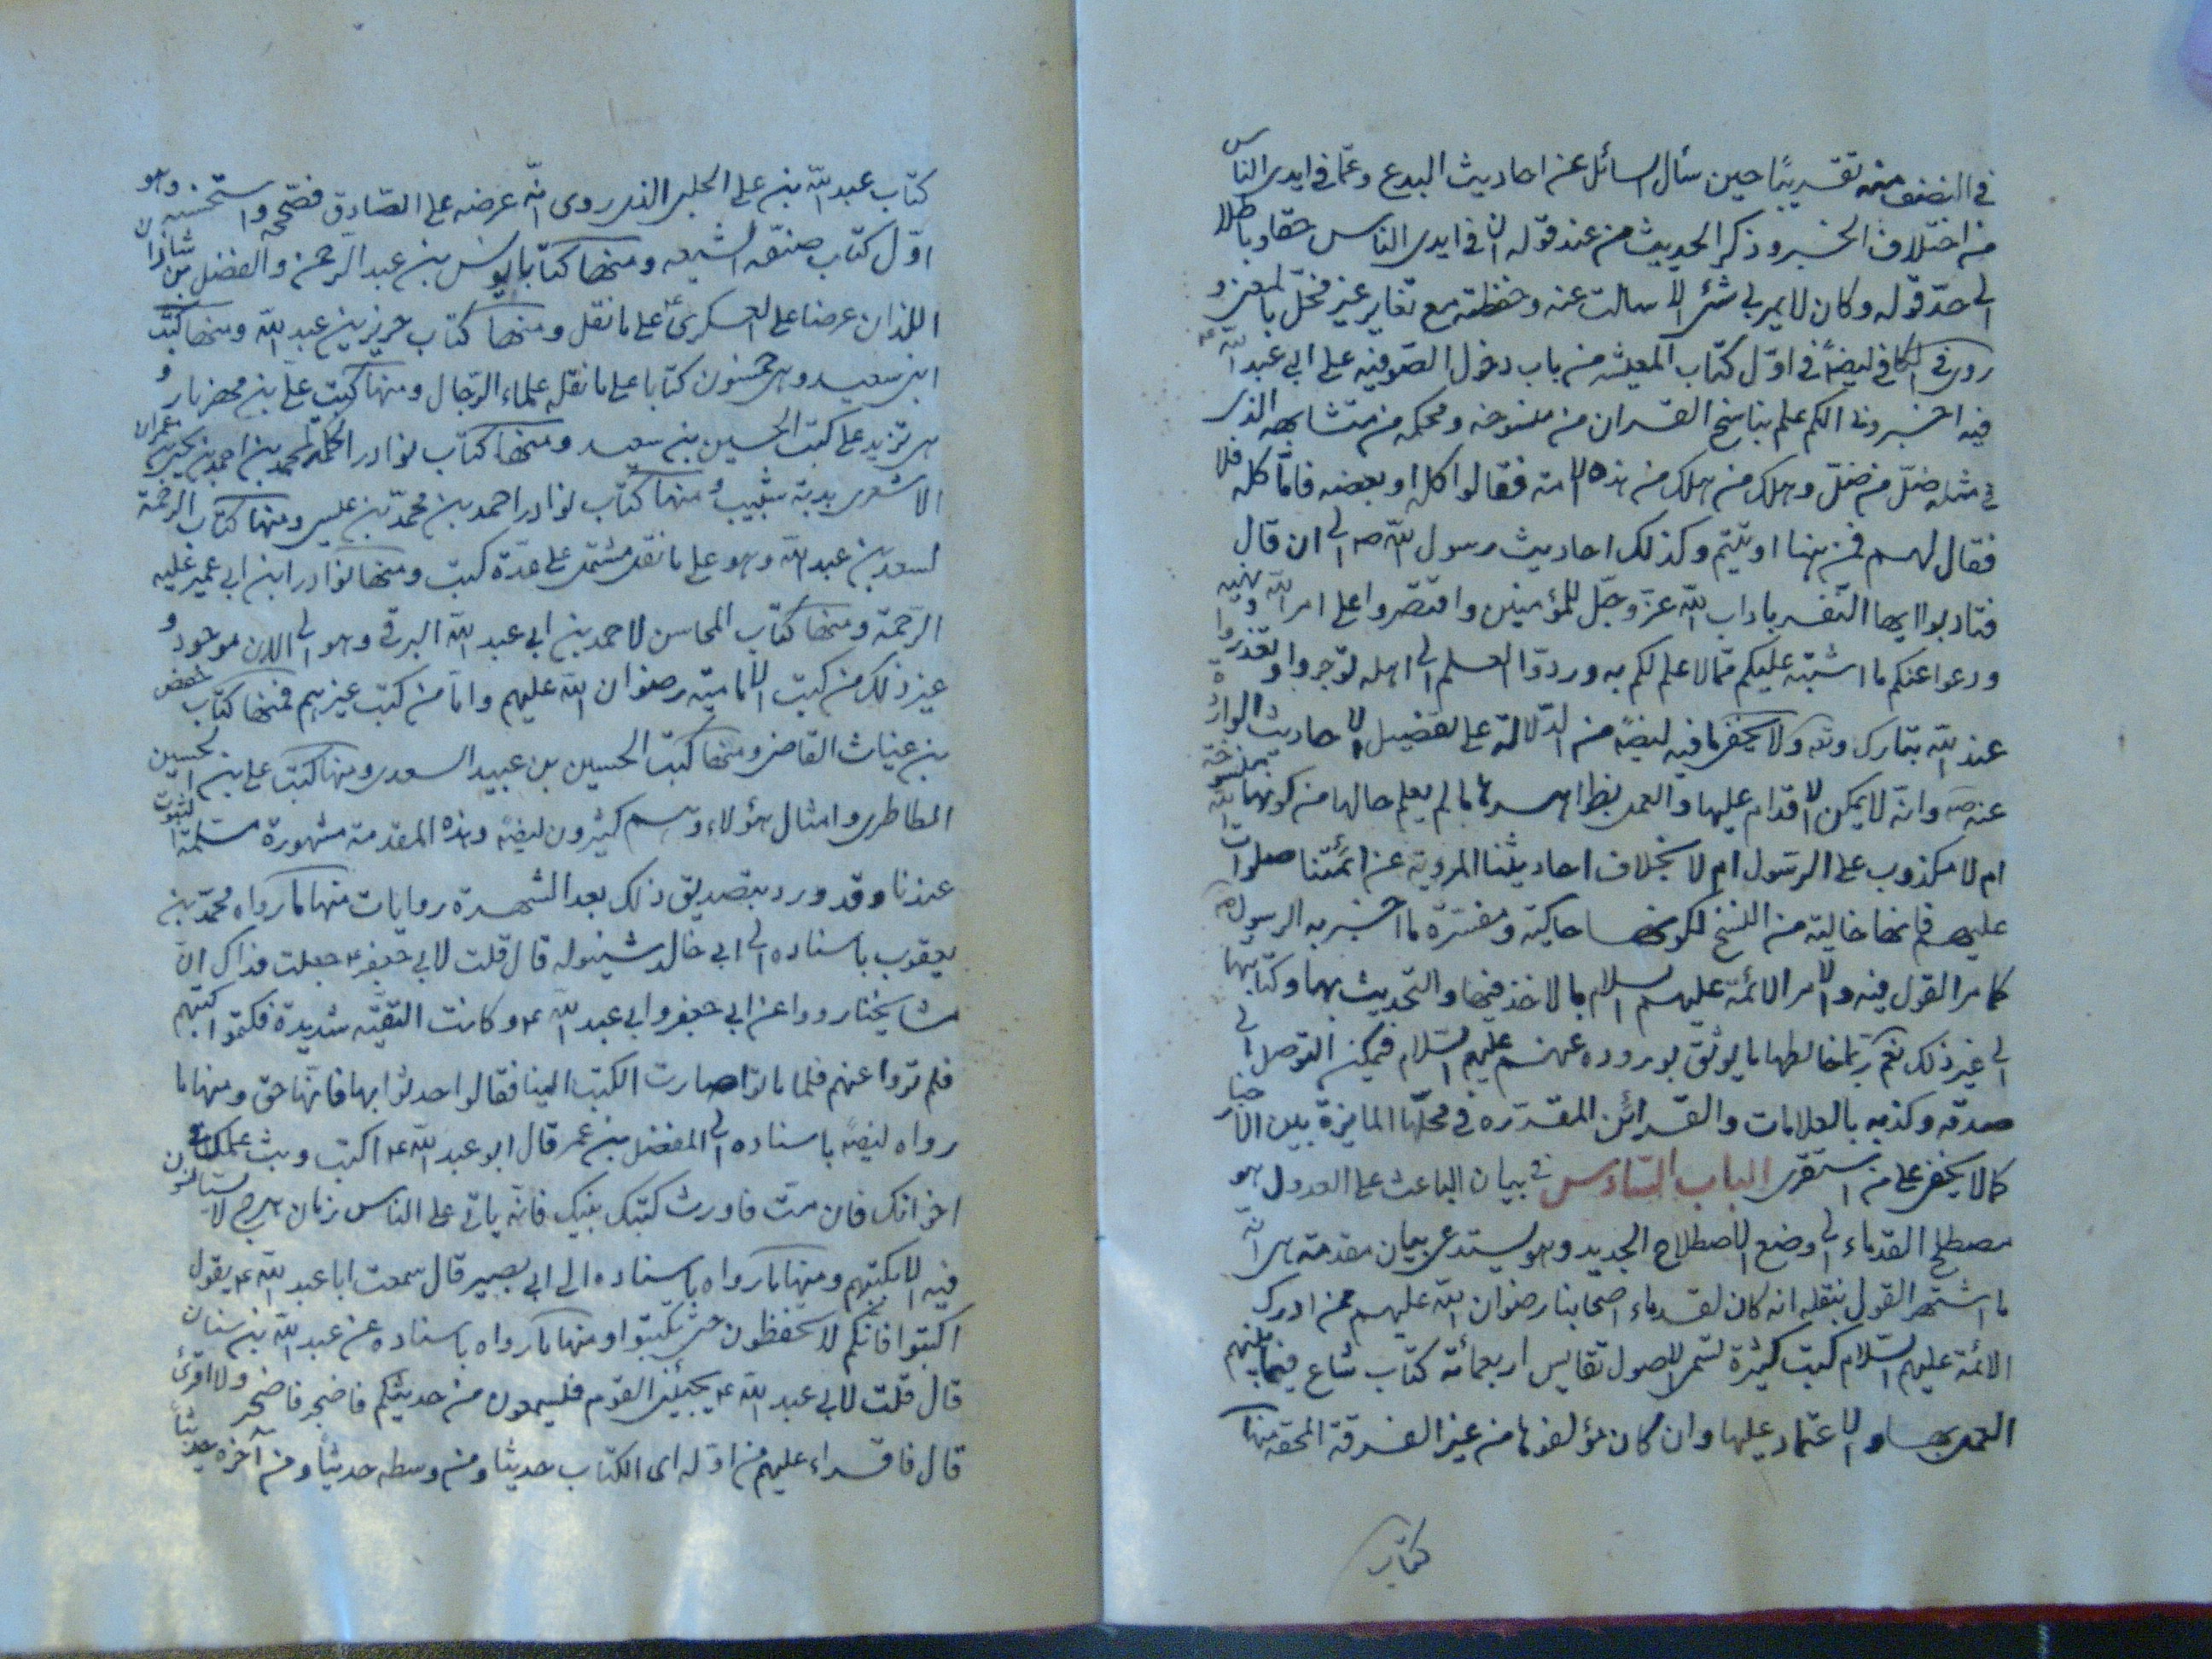 في النصف منه تقريبًا حين سأل السائل عن احاديث البدع وعمّا في ايدى الناس
من اختلاف الخبر وذكر الحديث من عند قوله ان في ايدى الناس حقا وباطلا
الى حدّ قوله وكان لا يمر بى شئ الا سالت عنه وحفظته مع تغاير غير مخلّ بالمعنى و
روى في الكافي ايضًا في اوّل كتاب المعيشه من باب دخول الصّوفيه على ابي عبد الله ع
فيه اخبرونى الكم علم بناسخ القران من منسوخه ومحكمه من متشابهه الذى
في مثله ضلّ من ضلّ وهلك من هلك من هذه الامة فقالوا كله او بعضه فامّا كله فلا
فقال لهم فمن هنا اوتيتم وكذلك احاديث رسول الله ص الى ان قال
فتادبوا ايها النفر باداب الله عزّ وجلّ للمؤمنين واقتصروا على امر الله ونهيه
ودعوا عنكم ما اشتبه عليكم ممّا لا علم لكم به وردوّا العلم الى اهله توجروا وتعذروا
عند الله تبارك وتع ولا يخفى ما فيه ايضًا من الدّلالة على تفضيل الاحاديث الواردة
عنه ص وانّه لا يمكن الاقدام عليها والعمل بظواهرها ما لم يعلم حالها من كونها منسوخة
ام لا مكذوب على الرسول ام لا بخلاف احاديثنا المروية عن ائمّتنا صلوات الله
عليهم فانها خالية من النسخ لكونها حاكية ومفسّرة ما اخبر به الرسول ص
كما مر القول فيه والامر الائمّة عليهم السلام بالاخذ فيها والتحديث بهما وكتابها
الى غير ذلك نعم ربّما خالطها ما يوثق بوروده عنهم عليهم السّلام فيمكن التوصل الى
صدقه وكذبه بالعلامات والقرائن المقدّره في محلّها المايزة بين الاخبار
كما لا يخفى على من استقرى الباب السّادس في بيان الباعث على العدول هو
مصطلح القدماء الى وضع الاصطلاح الجديد وهو يستدعى بيان مقدمة هى انّه
ما اشتهر القول بنقله انه كان لقدماء اصحابنا رضوان الله عليهم ممن ادرك
الائمّة عليهم السّلام كتب كثيرة تسمى الاصول تقايس اربعمائة كتاب شاع فيما بينهم
العمل بها والاعتماد عليها وان كان مؤلفوها من غير الفرقة المحقه منها
كتاب
كتاب عبد الله بن على الحلبى الذى روى انّه عرضه على الصّادق فصحّحه واستحسنه وهو
اوّل كتاب صنفه الشيعه ومنها كتابا يونس بن عبد الرّحمن والفضل بن شاذان
اللذان عرضا على العسكرىّ ع على ما نقل ومنها كتاب حريز بن عبد الله ومنها كتب
ابنى سعيد وهى خمسون كتابا على ما نقله علماء الرّجال ومنها كتب علىّ بن مهزيار و
هى تزيد على كتب الحسين بن سعيد ومنها كتاب نوادر الحكمة لمحمد بن احمد بن يحيى بن عمران
الاشعرى بدبة شبيب ومنها كتاب نوادر احمد بن محمّد بن عيسى ومنها كتاب الرّحمة
لسعد بن عبد الله وهو على ما نقل مشتمل على عدّة كتب ومنها نوادر ابن ابى عمير عليه
الرّحمة ومنها كتاب المحاسن لاحمد بن ابى عبد الله البرقى وهو الى الان موجود و
غير ذلك من كتب الامامية رضوان الله عليهم وامّا من كتب غيرهم فمنها كتاب حفص
بن غياث القاضى ومنها كتب الحسين بن عبيد السعدى ومنها كتب على بن الحسين
الطاطرى وامثال هؤلاء وهم كثيرون ايضًا وهذه المقدمة مشهورة مسلّمة الثبوت
عندنا وقد ورد بتصديق ذلك بعد الشهرة روايات منها ما رواه محمّد بن
يعقوب باسناده الى ابى خالد شينوله قال قلت لابى جعفر ع جعلت فداك انّ
مشايخنا رووا عن ابى جعفر وابى عبد الله ع وكانت التقيّه شديدة فكتموا كتبهم
فلم تروا عنهم فلما ماتوا صارت الكتب الينا فقالوا حدثوا بها فانّها حق ومنها ما
رواه ايضًا باسناده الى المفضل بن عمر قال ابو عبد الله ع اكتب وبث علمك في
اخوانك فان متّ فاورث كتبك بنيك فانّه ياتى على الناس زمان هرج لا يستانسون
فيه الا بكتبهم ومنها ما رواه باسناده الى ابى بصير قال سمعت ابا عبد الله ع يقول
اكتبوا فانكم لا تحفظون حتى تكتبوا ومنها ما رواه باسناده عن عبد الله بن سنان
قال قلت لابى عبد الله ع يجيئنى القوم فليسمعون من حديثكم فاضجر فاضجر ولا اقوى
قال فاقراء عليهم من اوّله اى الكتاب حديثا ومن وسطه حديثا ومن آخره حديثا